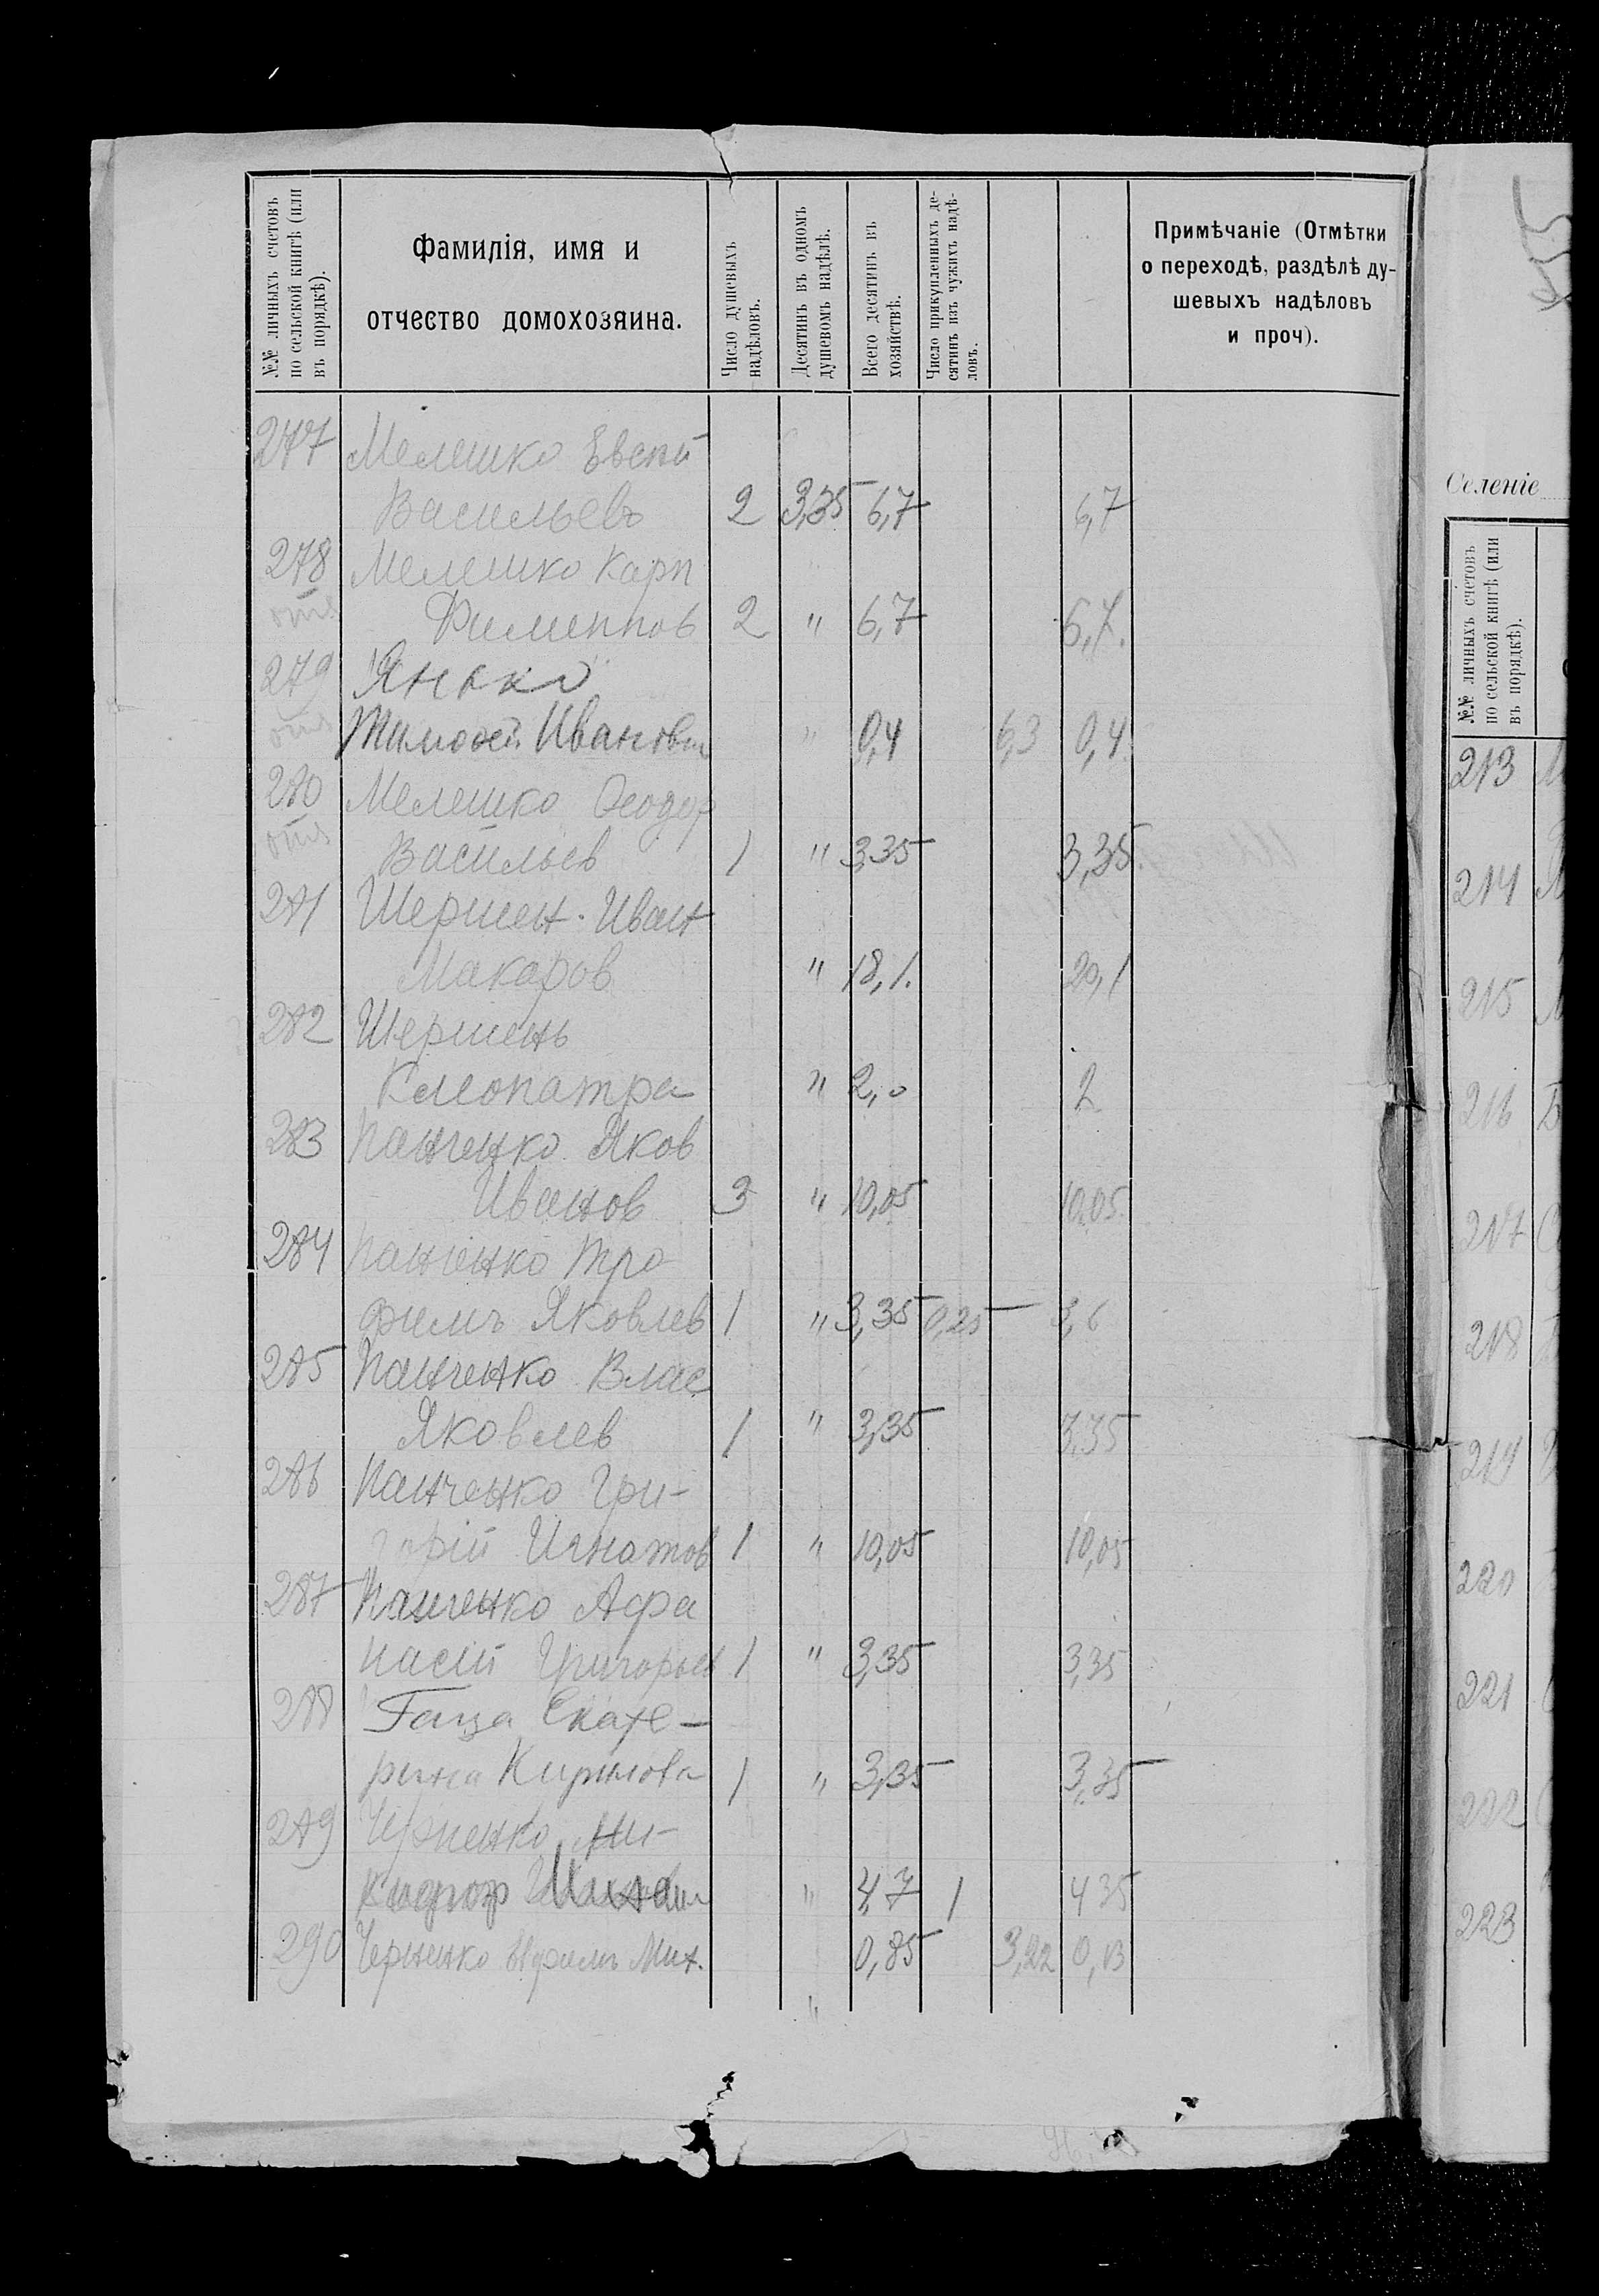 №№ личныхъ счетовъ
по сельской книгѣ (или
въ порядкѣ).
Фамилія, имя и
отчество домохозяина.
Число душевыхъ
надѣловъ.
Десятинъ въ одномъ
душевомъ надѣлѣ.
Всего десятинъ въ
хозяйствѣ.
Число прикупленныхъ де-
сятинъ изъ чужихъ надѣ-
ловъ.
Примѣчаніе (Отмѣтки
о переходѣ, раздѣлѣ ду-
шевыхъ надѣловъ
и проч).
277 Мелешко Евсей
Васильевъ 2 3,35 6,7 6,7
278 Мелешко Карп
Филиппов 2 " 6,7 6,7.
279 Янько
Тимоѳей Иванович " 0,4 6,3 0,4
280 Мелешко Ѳеодор
Васильев 1 " 3,35 3,35.
281 Шершен Иван
Макаров " 18,1. 20,1
282 Шершень
Клеопатра " 2,0 2
283 Панченко Яков
Иванов 3 " 10,05 10,05
284 Панченко Тро
фимъ Яковлев 1 " 3,35 0,25 3,6
285 Панченко Влас
Яковлев 1 " 3,35 3,35
286 Панченко Гри-
горій Игнатов 1 " 10,05 10,05
287 Панченко Афа
насій Григорьев 1 " 3,35 3,35
288 Гаца Екате-
рина Кирилова 1 " 3,35 3,35
289 Черненко Ни-
кифор " 4,7 1 4 35
290 Черненко Ефимъ Мих. 0,85 3,22 0,13
"
Селеніе
№№ личныхъ счетовъ
по сельской книгѣ (или
въ порядкѣ).
213
214
215
216
217
218
219
220
221
222
223